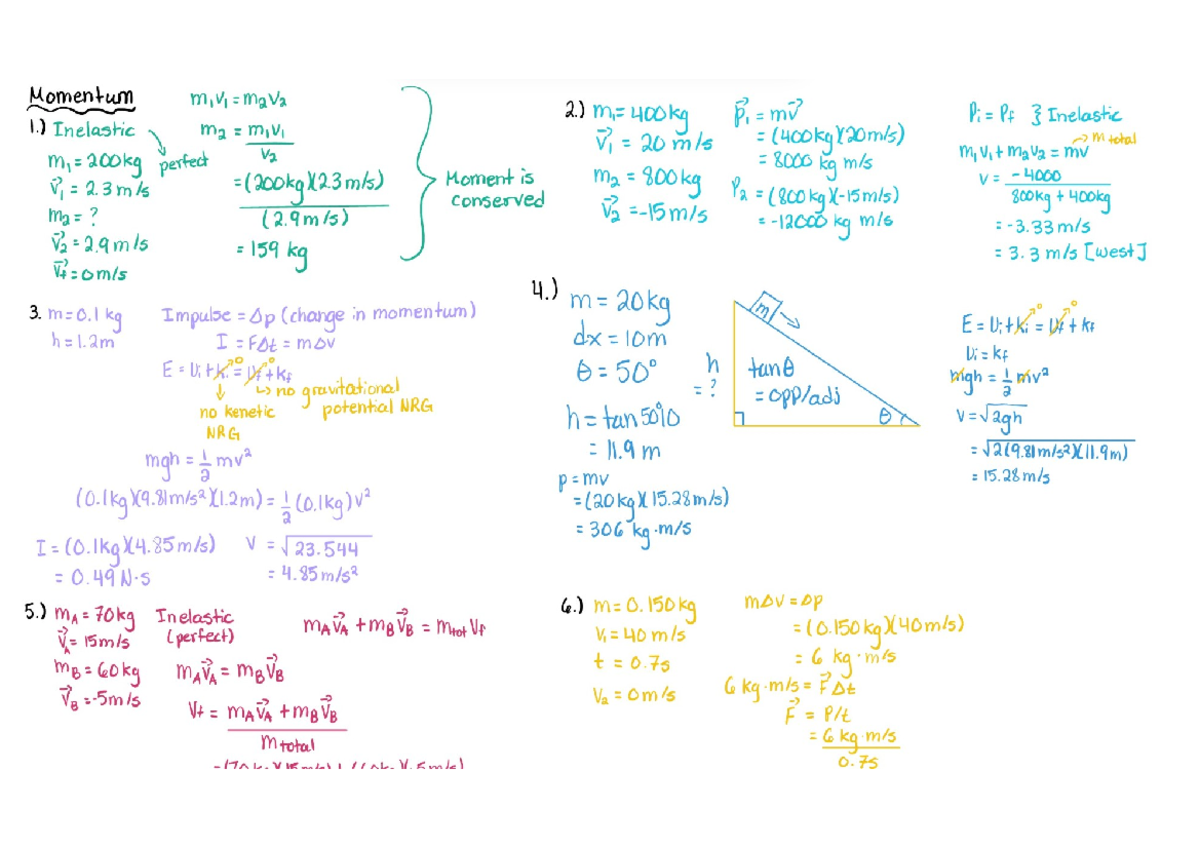 Momentum
1.) Inelastic
perfect
m₁ = 200kg
v⃗₁ = 2.3 m/s
m₂ = ?
v⃗₂ = 2.9 m/s
v⃗f = 0 m/s
m₁v₁ = m₂v₂
m₂ = m₁v₁
v₂
= (200kg)(2.3 m/s)
(2.9 m/s)
= 159 kg
Moment is
conserved
2.) m₁ = 400kg
v⃗₁ = 20 m/s
m₂ = 800kg
v⃗₂ = -15 m/s
p⃗₁ = mv⃗
= (400kg)(20m/s)
= 8000 kg m/s
p₂ = (800kg)(-15m/s)
= -12000 kg m/s
Pi = Pf } Inelastic
→ m total
m₁v₁ + m₂v₂ = mv
v = -4000
800kg + 400kg
= -3.33 m/s
= 3.3 m/s [west]
3. m = 0.1 kg
h = 1.2m
Impulse = Δp (change in momentum)
I = FΔt = mΔv
E = Ui + Ki⁰ = Uf⁰ + Kf
↳ no gravitational
potential NRG
no kenetic
NRG
mgh = ½ mv²
(0.1kg)(9.81m/s²)(1.2m) = ½ (0.1kg)v²
I = (0.1kg)(4.85m/s)
= 0.49 N·s
V = √23.544
= 4.85m/s²
4.) m = 20kg
dx = 10m
θ = 50°
h = tan50°10
= 11.9 m
p = mv
= (20kg)(15.28m/s)
= 306 kg·m/s
h
= ?
m
tanθ
= opp/adj
θ
E = Ui + Ki⁰ = Uf⁰ + Kf
Ui = Kf
mgh = ½ mv²
v = √2gh
= √2(9.81m/s²)(11.9m)
= 15.28 m/s
5.) mA = 70kg
v⃗A = 15m/s
mB = 60kg
v⃗B = -5m/s
Inelastic
(perfect)
mAv⃗A = mBv⃗B
mAv⃗A + mBv⃗B = mtot Vf
Vf = mAv⃗A + mBv⃗B
mtotal
= (70kg)(15m/s) + (60kg)(-5m/s)
6.) m = 0.150kg
v₁ = 40 m/s
t = 0.7s
v₂ = 0m/s
mΔv = Δp
= (0.150kg)(40m/s)
= 6 kg·m/s
6 kg·m/s = F⃗Δt
F⃗ = P/t
= 6 kg·m/s
0.7s